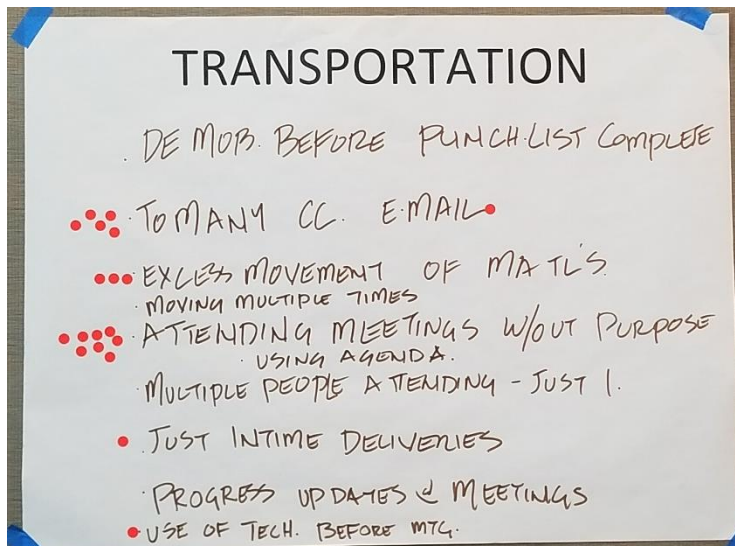 TRANSPORTATION
. DE MOB. BEFORE PUNCH.LIST COMPLETE
· TO MANY CC. E.MAIL
· EXCESS MOVEMENT OF MATL'S.
· MOVING MULTIPLE TIMES
· ATTENDING MEETINGS W/OUT PURPOSE
· USING AGENDA.
· MULTIPLE PEOPLE ATTENDING - JUST 1.
· JUST INTIME DELIVERIES
· PROGRESS UPDATES & MEETINGS
· USE OF TECH. BEFORE MTG.